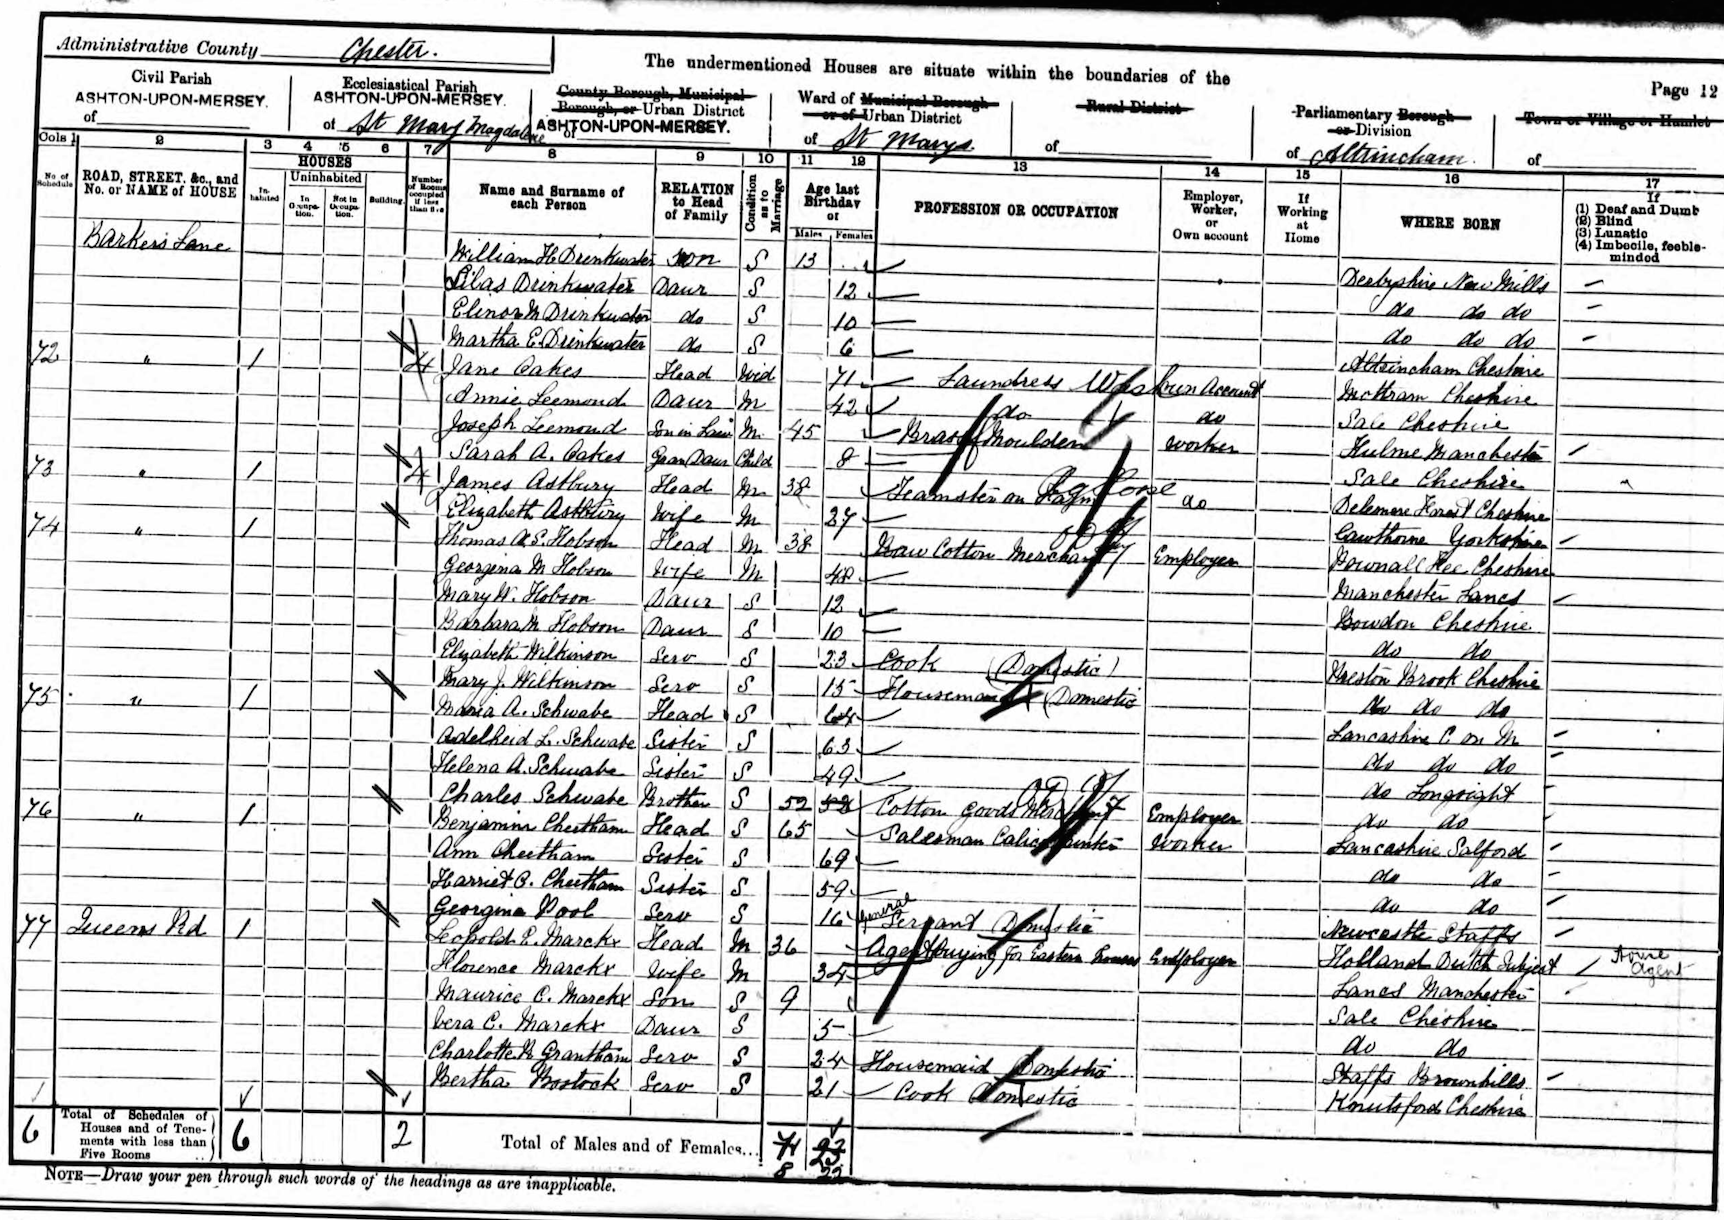 Administrative County Chester.
The undermentioned Houses are situate within the boundaries of the
Page 12
Civil Parish
ASHTON-UPON-MERSEY.
of
Ecclesiastical Parish
ASHTON-UPON-MERSEY.
of St Mary Magdalene
County Borough, Municipal
Borough, or Urban District
ASHTON-UPON-MERSEY.
of
Ward of Municipal Borough
or of Urban District
of St Marys
Rural District
of
Parliamentary Borough
or Division
of Altrincham
Town or Village or Hamlet
of
Cols 1 2 3 4 5 6 7 8 9 10 11 12 13 14 15 16 17
No. of Schedule
ROAD, STREET, &c., and No. or NAME of HOUSE
HOUSES
Inhabited
Uninhabited
In Occupation.
Not in Occupation.
Building.
Number of Rooms occupied if less than five
Name and Surname of each Person
RELATION to Head of Family
Condition as to Marriage
Age last Birthday of
Males Females
PROFESSION OR OCCUPATION
Employer, Worker, or Own account
If Working at Home
WHERE BORN
If
(1) Deaf and Dumb
(2) Blind
(3) Lunatic
(4) Imbecile, feeble-minded
Barkers Lane
William H Drinkwater Son S 13
Silas Drinkwater Daur S 12 Derbyshire New Mills
Elinor M Drinkwater do S 10 do do do
Martha E. Drinkwater do S 6 do do do
72 " 1 4 Jane Oakes Head Wid 71 Laundress Wash Own Account Altrincham Cheshire
Annie Leemond Daur M 42 do do Mottram Cheshire
Joseph Leemond Son in Law M 45 Brass Moulder Worker Sale Cheshire
Sarah A. Oakes Gran Daur Child 8 Hulme Manchester
73 " 1 4 James Astbury Head M 38 Teamster on Farm do Sale Cheshire
Elizabeth Astbury Wife M 27 Delamere Forest Cheshire
74 " 1 Thomas A S. Hobson Head M 38 Raw Cotton Merchant Employer Cawthorne Yorkshire
Georgina M Hobson Wife M 48 Pownall Fee Cheshire
Mary W. Hobson Daur S 12 Manchester Lancs
Barbara M Hobson Daur S 10 Bowdon Cheshire
Elizabeth Wilkinson Serv S 23 Cook (Domestic) do do
Mary J. Wilkinson Serv S 15 Housemaid (Domestic Preston Brook Cheshire
75 " 1 Maria A. Schwabe Head S 64 do do do
Adelheid L. Schwabe Sister S 63 Lancashire C on M
Helena A. Schwabe Sister S 49 do do do
Charles Schwabe Brother S 52 52 Cotton Goods Merchant Employer do Longsight
76 " 1 Benjamin Cheetham Head S 65 Salesman Calico Printer Worker do do
Ann Cheetham Sister S 69 Lancashire Salford
Harriet C. Cheetham Sister S 59 do do
Georgina Pool Serv S 16 General Servant Domestic do do
77 Queens Rd 1 Leopold E. Marckx Head M 36 Agent buying for Eastern houses Employer Newcastle Staffs
Florence Marckx Wife M 34 Holland Dutch Subject
Maurice C. Marckx Son S 9 Lancs Manchester
Vera C. Marckx Daur S 5 Sale Cheshire
Charlotte R Grantham Serv S 24 Housemaid Domestic do do
Bertha Bostock Serv S 21 Cook Domestic Staffs Brownhills
Knutsford Cheshire
6 Total of Schedules of Houses and of Tenements with less than Five Rooms 6 2 Total of Males and of Females... 71 23
8 22
NOTE—Draw your pen through such words of the headings as are inapplicable.